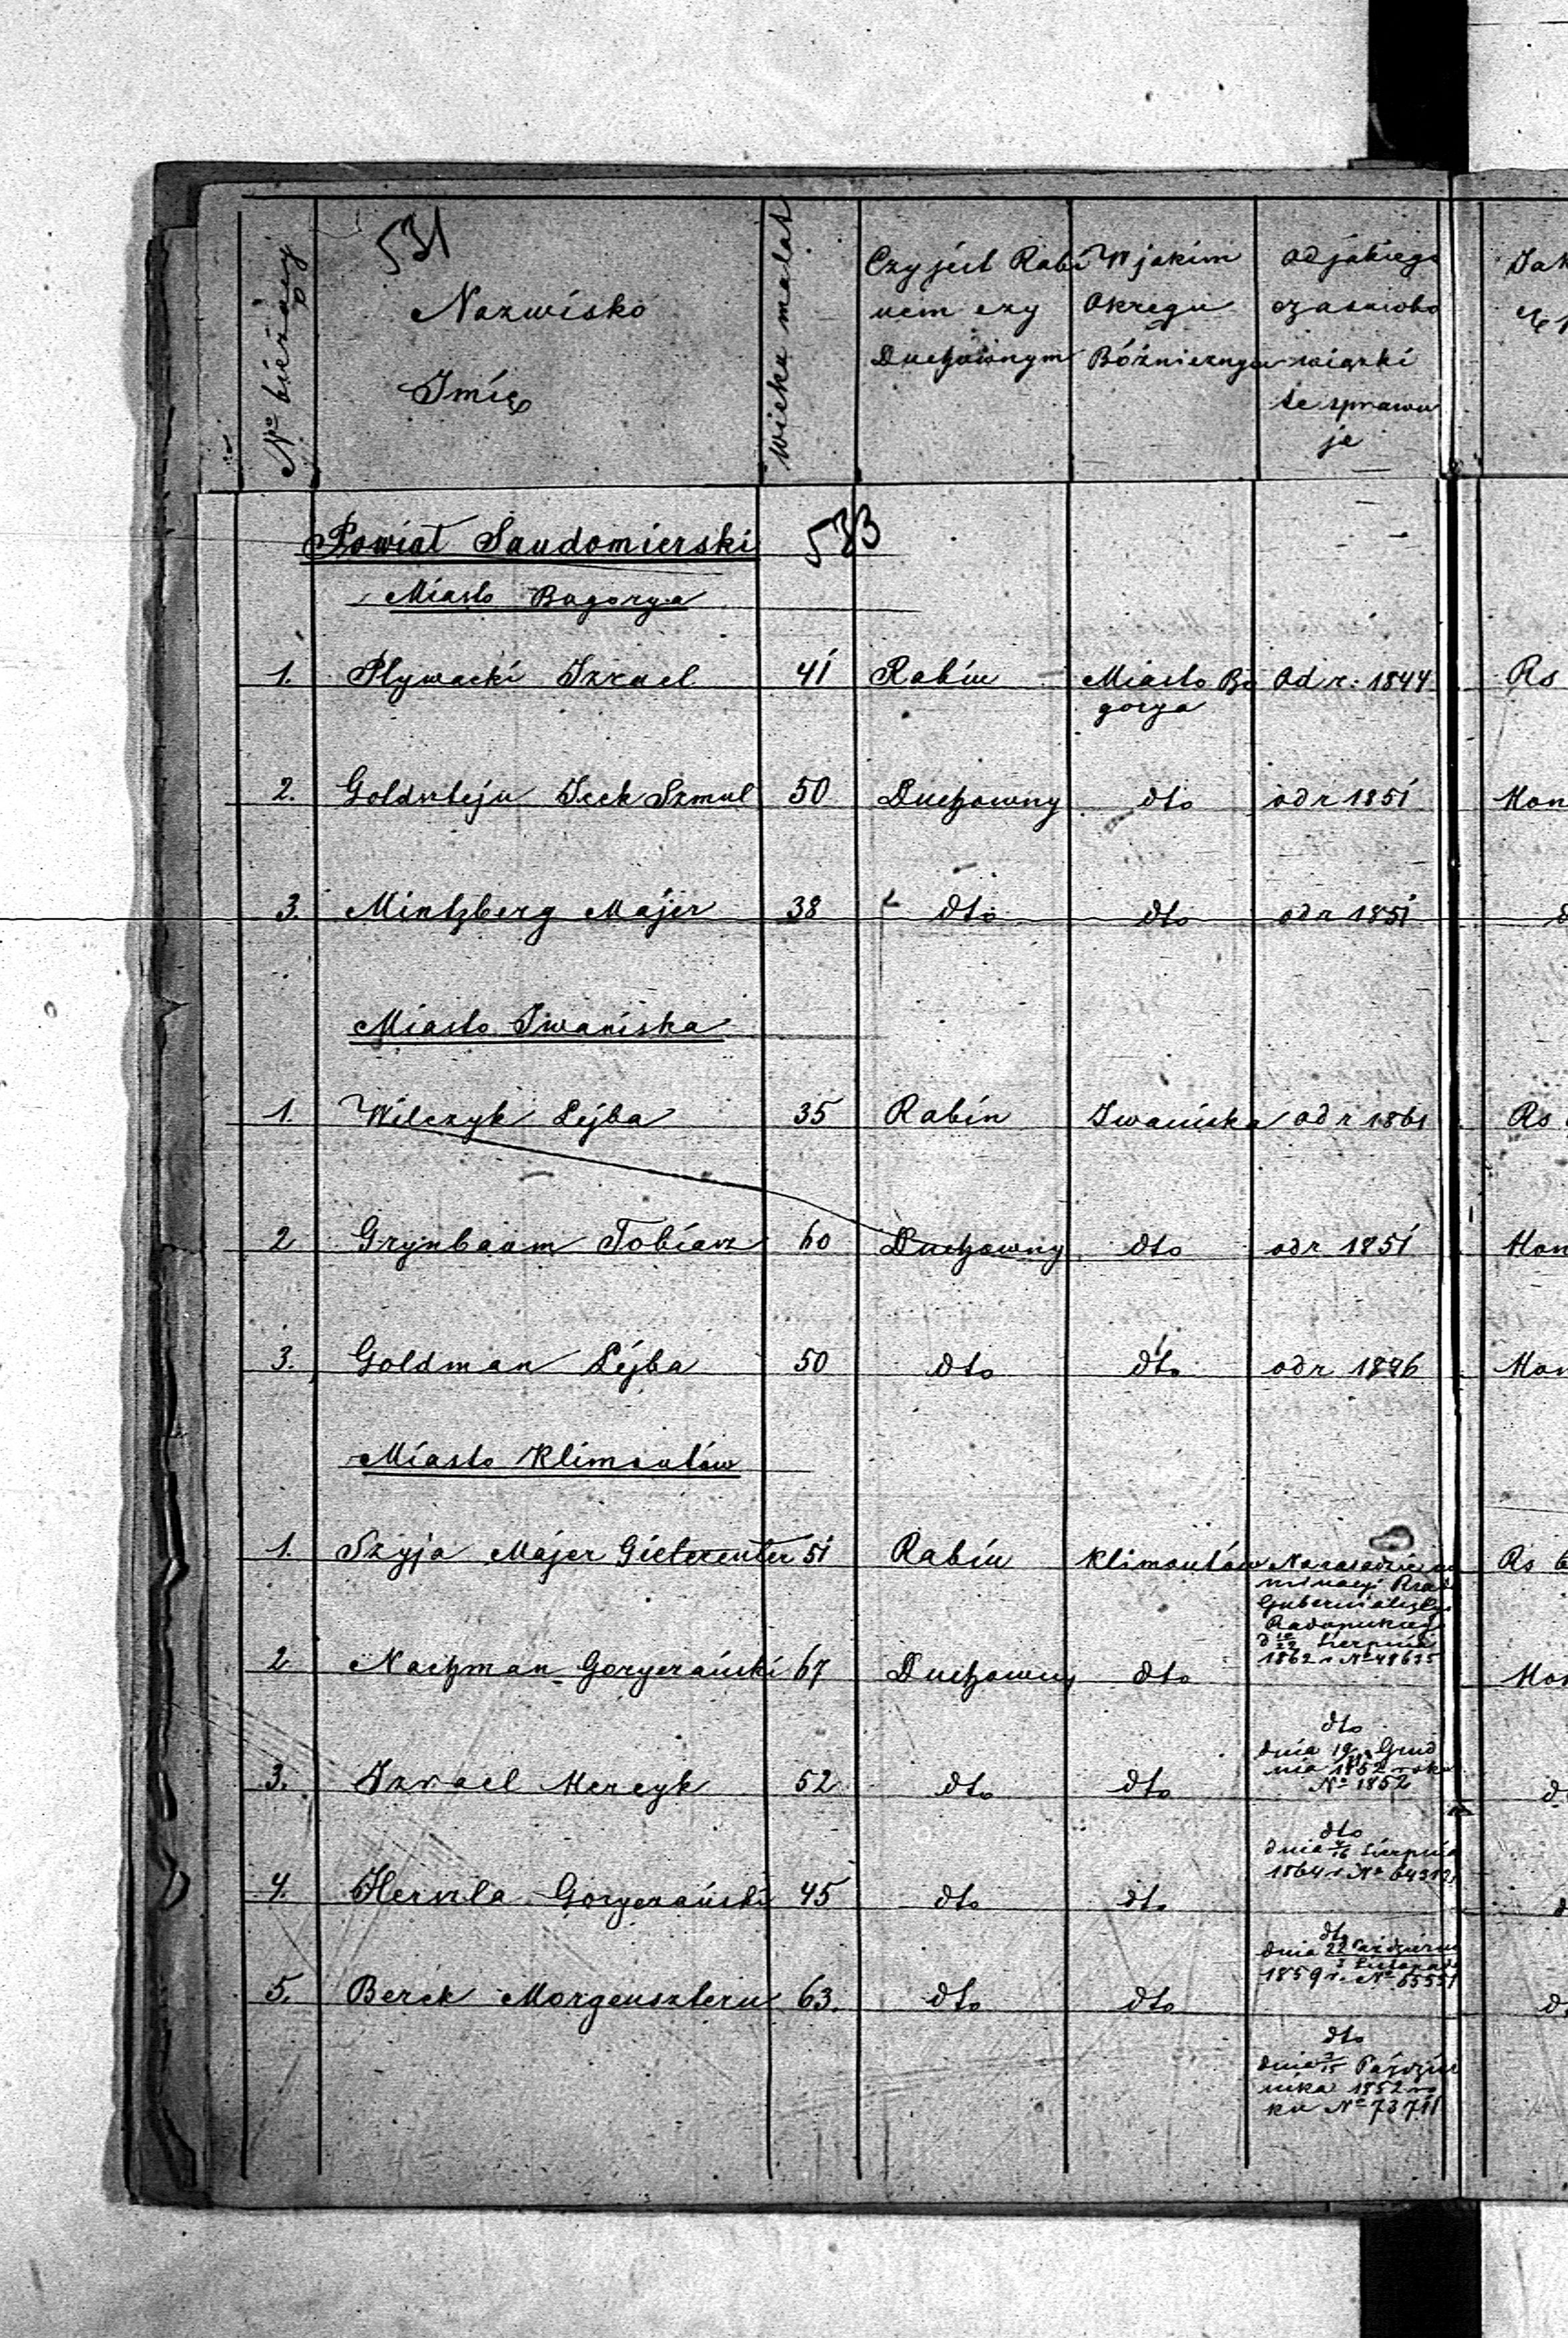 531
Nº bieżący
Nazwisko
Imię
Wieku ma lat
Czy jest Rabi
nem czy
Duchownym
W jakim
Okręgu
Bóżniczym
Od jakiego
czasu obo
wiązki
te sprawu
je
Powiat Sandomierski 533
Miasto Bogorya
1. Pływacki Izrael 41 Rabin Miasto Bo Od r: 1844 Rs
gorya
2. Goldsztejn Icek Szmul 50 Duchowny dto od r 1851 Hon
3. Mintzberg Majer 38 dto dto od r 1851
Miasto Iwaniska
1. Wilczyk Lejba 35 Rabin Iwaniska od r 1861 Rs
2 Grynbaum Tobiasz 60 Duchowny dto od r 1851 Hon
3. Goldman Lejba 50 dto dto od r 1846 Hon
Miasto Klimontów
1. Szyja Majer Gieterenter 51 Rabin Klimontów Na zasadzie no Rs
minacyi Rządu
Gubernialnego
Radomskiego
d 10/22 Sierpnia
1862 r Nº 48625
2 Nachman Goryczański 67 Duchowny dto Hon
dto
dnia 19 Grud
nia 1852 roku
Nº 1852
3. Izrael Mercyk 52 dto dto
dto
dnia 4/16 Sierpnia
1864 r. Nº 64312
4. Herszla Goryczański 45 dto dto
dto
dnia 22 Październ
3 Listopada
1859 r. Nº 65551
5. Berek Morgensztern 63. dto dto
dto
dnia 3/15 Paździer
nika 1852 ro
ku Nº 73711